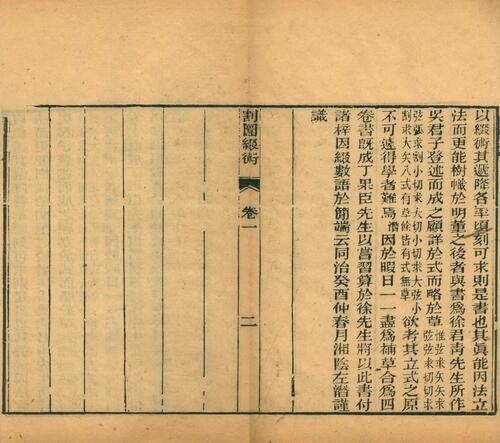 以綴術其遞降各率頃刻可求則是書也其眞能因法立
法而更能樹幟於明董之後者與書爲徐君靑先生所作
吳君子登述而成之顧詳於式而略於草
惟弦求矢矢求
弦弦求切切求
弦求割小切求大切小切求大弦小
割求大矢八式有草餘皆有式無草
欲考其立式之原
不可遽得學者難焉潛因於暇日一一盡爲補草合爲四
卷書旣成丁果臣先生以嘗習算於徐先生將以此書付
諸梓因綴數語於簡端云同治癸酉仲春月湘陰左潛謹
識
割圜綴術 卷一 二